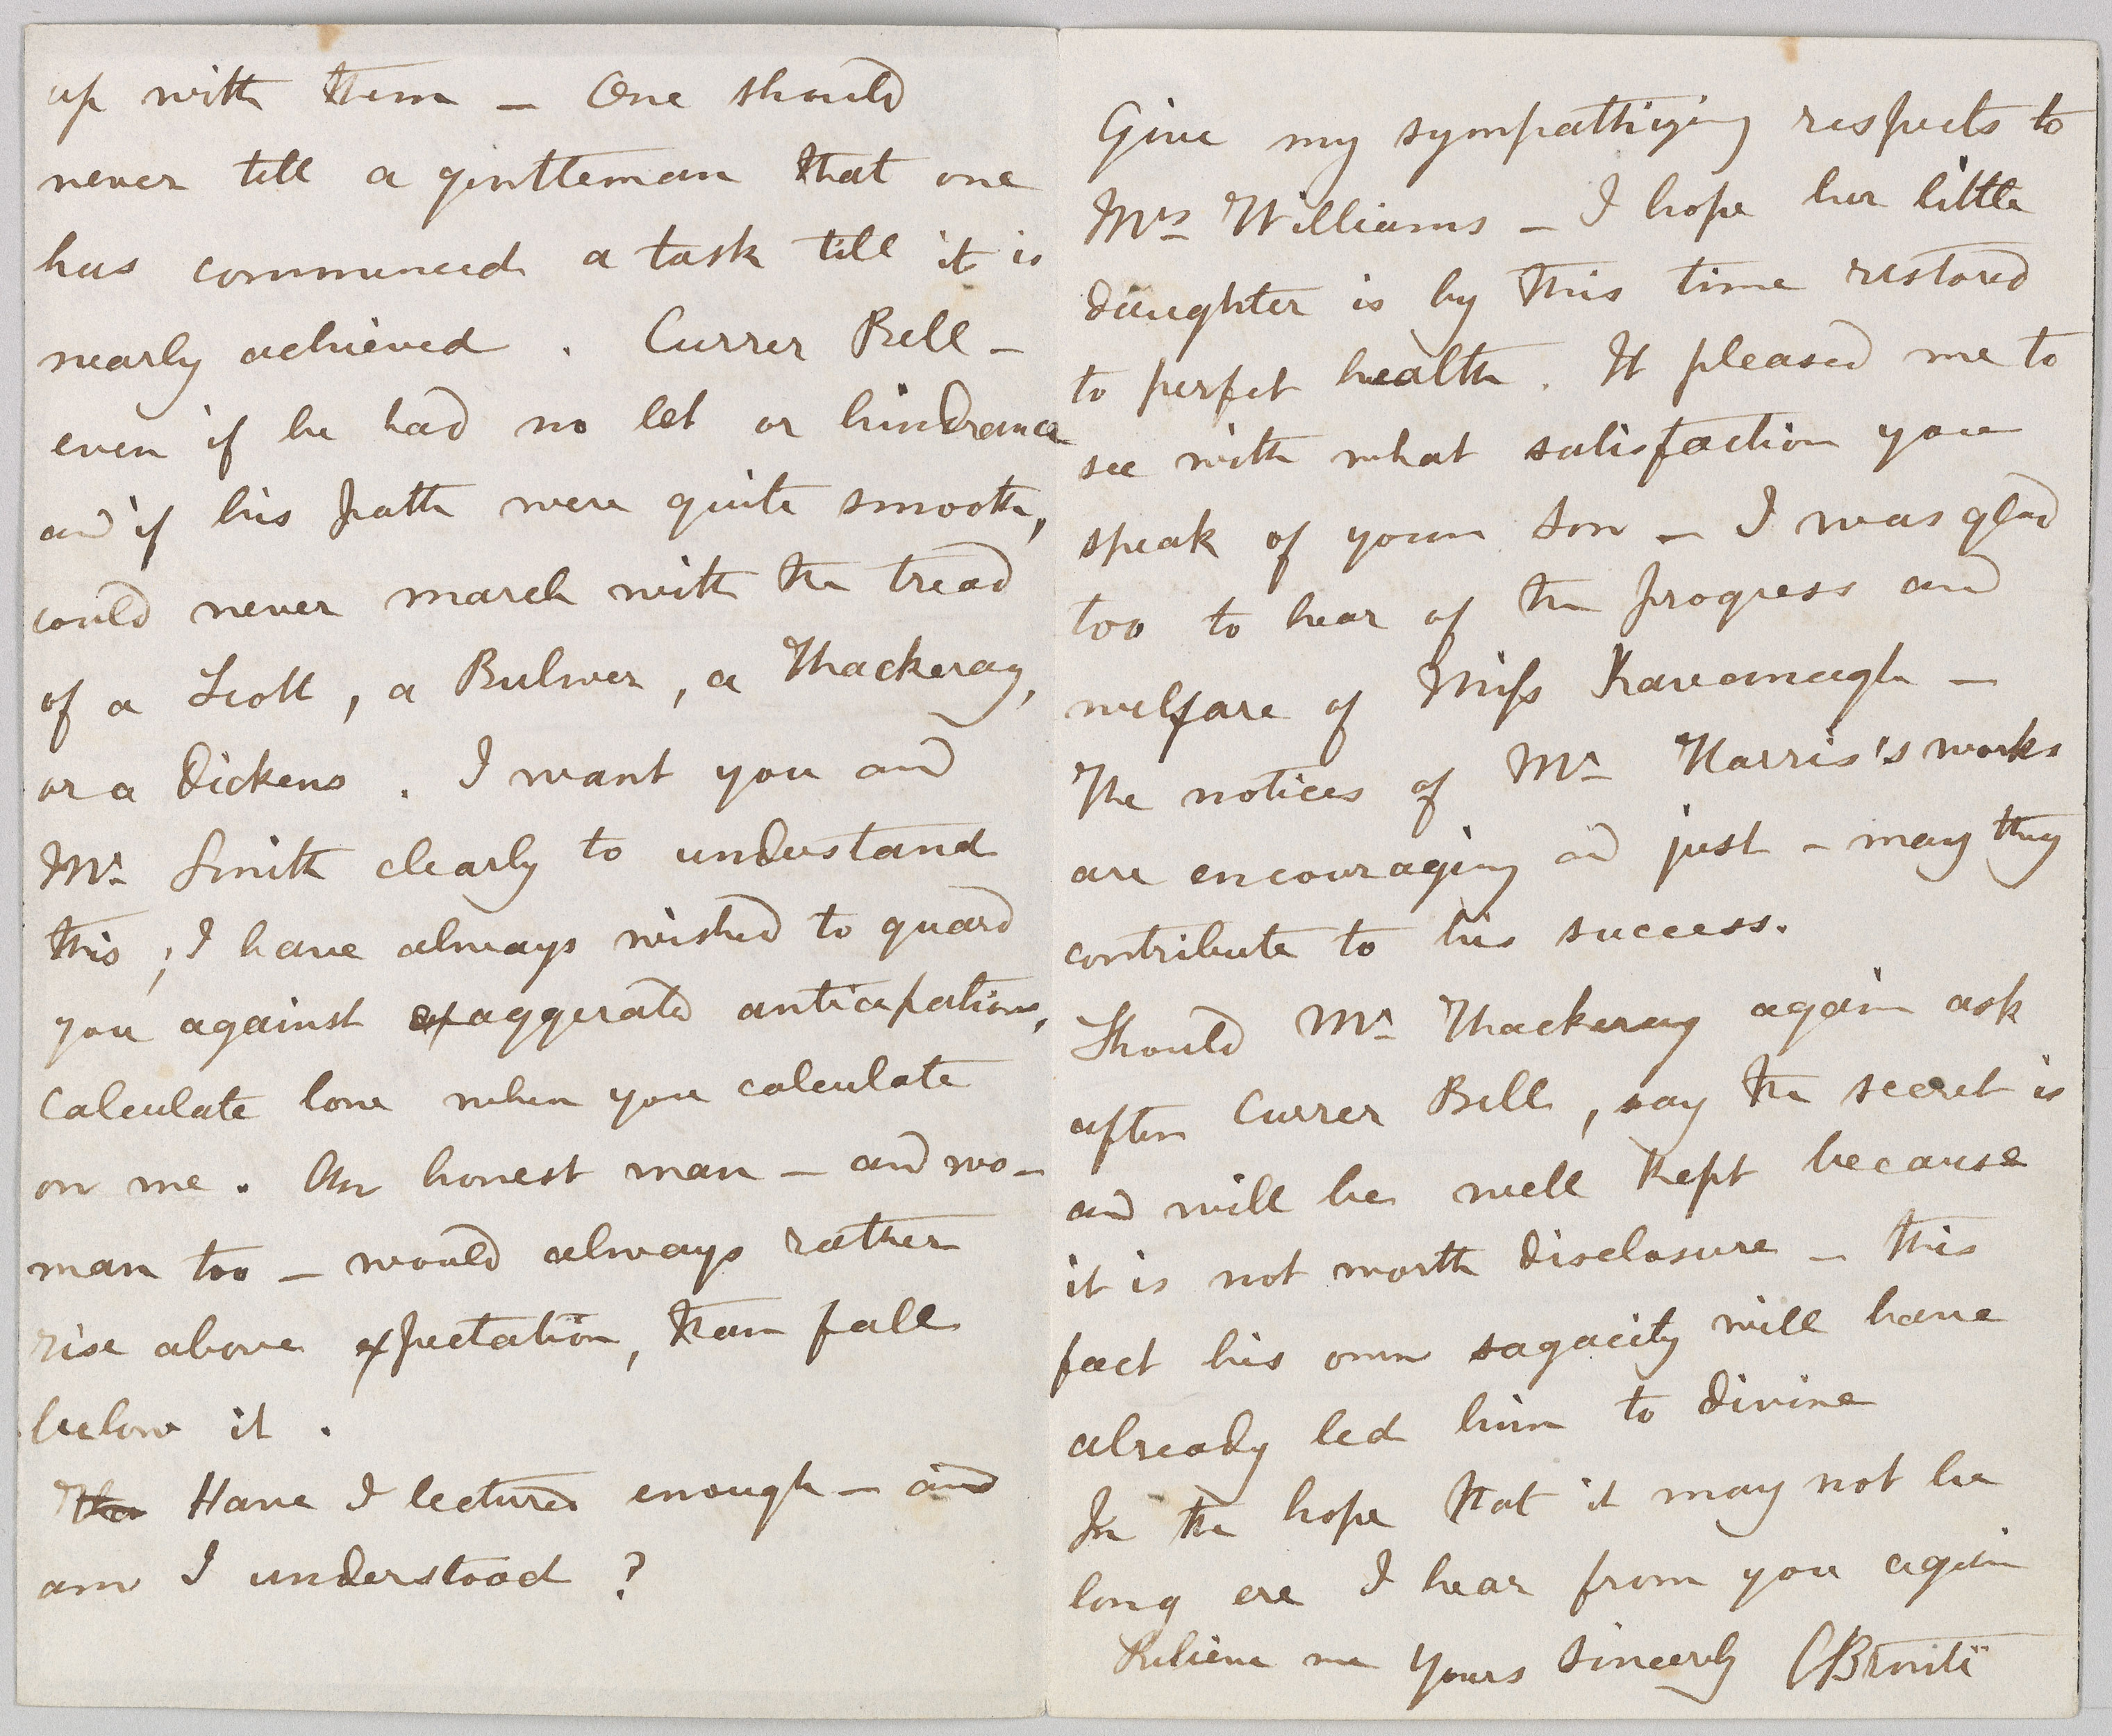 up with them – One should
never tell a gentleman that one
has commenced a task till it is
nearly achieved . Currer Bell –
even if he had no let or hindrance
and if his path were quite smooth,
could never march with the tread
of a Scott, a Bulwer, a Thackeray,
or a Dickens . I want you and
Mr Smith clearly to understand
this; I have always wished to guard
you against exaggerated anticipations,
calculate low when you calculate
on me. An honest man – and wo-
man too – would always rather
rise above expectation, than fall
below it .
Have I lectured enough – and
am I understood ?
Give my sympathizing respects to
Mrs Williams – I hope her little
daughter is by this time restored
to perfect health. It pleased me to
see with what satisfaction you
speak of your Son – I was glad
too to hear of the progress and
welfare of Miss Kavanagh –
The notices of Mr Harris's works
are encouraging and just – may they
contribute to his success.
Should Mr Thackeray again ask
after Currer Bell, say the secret is
and will be well kept because
it is not worth disclosure – this
fact his own sagacity will have
already led him to divine
In the hope that it may not be
long ere I hear from you again
Believe me Yours sincerely CBrontë